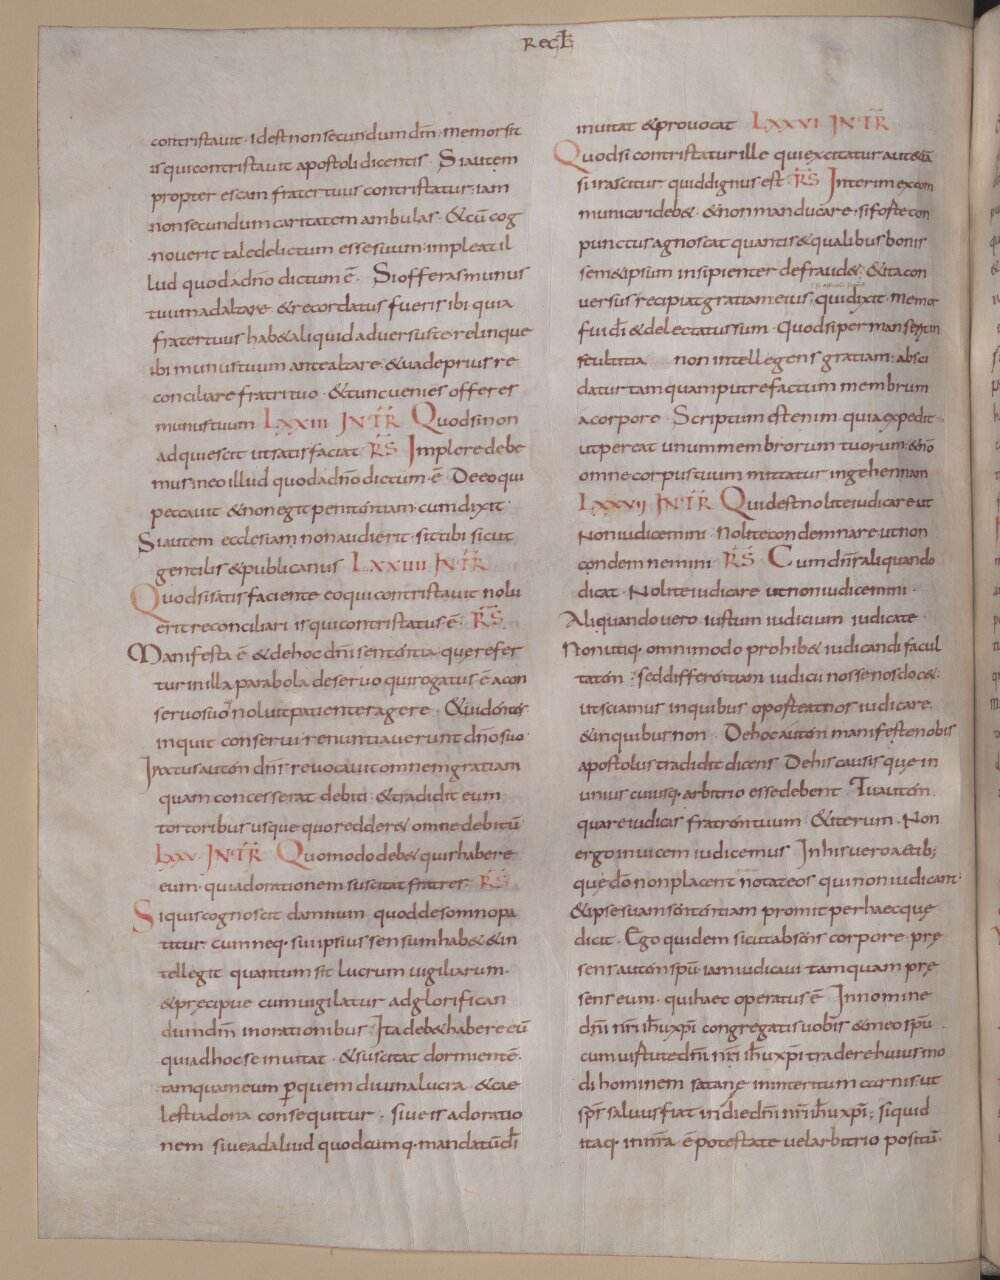 REGL
contristavit · id est non secundum dm̄ · memor sit
is qui contristavit apostoli dicentis · Si autem
propter escam frater tuus contristatur · iam
non secundum caritatem ambulas · & cū cog
noverit tale delictum esse suum · impleat il
lud quod a dn̄o dictum ē · Si offeras munus
tuum ad altare & recordatus fueris ibi quia
frater tuus hab& aliquid adversus te relinque
ibi munus tuum ante altare · & vade prius re
conciliare fratri tuo · & tunc venies offeres
munus tuum LXXIII INTR̄ Quod si non
adquiescit ut satis faciat RS̄ Implere debe
mus in eo illud quod a dn̄o dictum · ē · De eo qui
peccavit & non egit penitentiam · cum dixit ·
Si autem ecclesiam non audierit · sit tibi sicut
gentilis & publicanus LXXIIII INTR̄
Quod si satis faciente eo qui contristavit nolu
erit reconciliari is qui contristatus · ē · RS̄
Manifesta ē & de hoc dn̄i sententia · quę refer
tur in illa parabola de servo qui rogatus · ē a con
servo suo noluit patienter agere · & videntes
inquit conservi renuntiaverunt dn̄o suo
Iratus autem dn̄s revocavit omnem gratiam
quam concesserat debiti · & tradidit eum
tortoribus usque quo redder& omne debitū
LXXV INTR̄ Quomodo deb& quis habere
eum · qui ad orationem suscitat fratres · RS̄
Si quis cognoscit damnum quod de somno pa
titur cum neq· sui ipsius sensum hab& & in
tellegit quantum sit lucrum vigiliarum ·
& pręcipue cum vigilatur ad glorifican
dum dm̄ in orationibus · Ita deb& habere eū
qui ad hoc se invitat · & suscitat dormientē ·
tamquam eum ꝑ quem divina lucra · & cae
lestia dona consequitur · sive is ad oratio
nem sive ad aliud quodcumq· mandatū dī
invitat & provocat LXXVI INTR̄
Quod si contristatur ille qui excitatur aut etiā
si irascitur quid dignus est · RS̄ Interim excom
municari deb& · & non manducare · si forte con
punctus agnoscat quantis & qualibus bonis
sem&ipsum insipienter defraud& · & ita con
versus recipiat gratiam eius · qui dixit · Memor
fui dī & delectatus sum · Quod si permanserit in
stultitia non intellegens gratiam · absci
datur tamquam putrefactum membrum
a corpore · Scriptum est enim quia expedit ·
ut pereat unum membrorum tuorum · & nō
omne corpus tuum mittatur in gehennam
LXXVII INTR̄ Quid est nolite iudicare ut
Non iudicemini · Nolite condemnare ut non
condemnemini RS̄ · Cum dn̄s aliquando
dicat · Nolite iudicare ut non iudicemini ·
Aliquando vero · iustum iudicium iudicate
Non utiq· omnimodo prohib& iudicandi facul
tatem · sed differentiam iudicii nosse nos doc& ·
ut sciamus in quibus oporteat nos iudicare ·
& in quibus non · De hoc autem manifeste nobis
apostolus tradidit dicens De his causis quę in
unius cuiusq· arbitrio esse debent Tu autem ·
quare iudicas fratrem tuum · & iterum · Non
ergo invicem iudicemus · In his vero actib;
quę dō non placent notat eos qui non iudicant ·
& ipse suam sententiam promit per haec quę
dicit · Ego quidem sicut absens corpore · prę
sens autem spū · iam iudicavi tamquam prę
sens eum · qui haec operatus ē In nomine
dn̄i nr̄i ih̄u xp̄i congregatis vobis & meo spū ·
cum virtute dn̄i nr̄i ih̄u xp̄i tradere huius mo
di hominem satanę in interitum carnis · ut
sps̄ salvus fiat in die dn̄i nr̄i ih̄u xp̄i ; si quid
itaq· in nr̄a ē potestate vel arbitrio positū ·